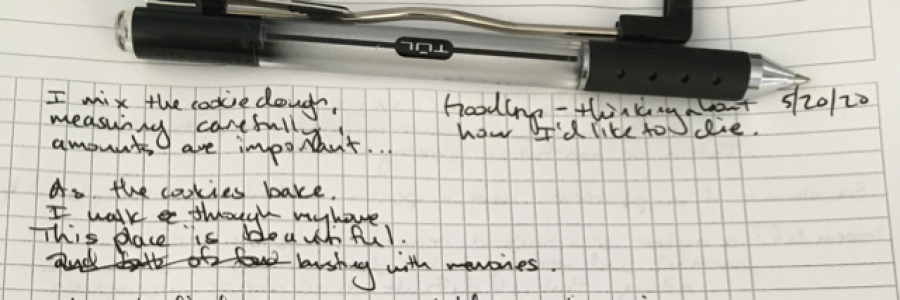 TUL
I mix the cookie dough,
measuring carefully,
amounts are important...
- thinking about
how I'd like to die.
5/20/20
As the cookies bake.
I walk through my house
This place is beautiful.
and full of bursting with memories.